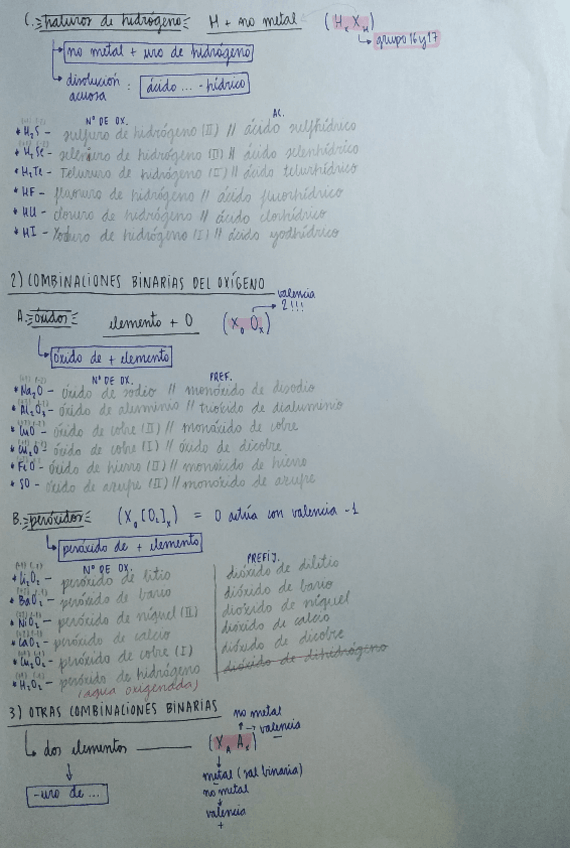 C. haluros de hidrógeno H + no metal (HₓXₕ)
grupo 16 y 17
no metal + uro de hidrógeno
disolución acuosa : ácido ... -hídrico
Nº DE OX. AC.
• H₂S - sulfuro de hidrógeno (II) // ácido sulfhídrico
• H₂Se - seleniuro de hidrógeno (II) // ácido selenhídrico
• H₂Te - Telururo de hidrógeno (II) // ácido telurhídrico
• HF - fluoruro de hidrógeno // ácido fluorhídrico
• HCl - cloruro de hidrógeno // ácido clorhídrico
• HI - Yoduro de hidrógeno (I) // ácido yodhídrico
2) COMBINACIONES BINARIAS DEL OXÍGENO
valencia
2!!!
A. óxidos elemento + O (X₀ Oₓ)
óxido de + elemento
Nº DE OX. PREF.
• Na₂O - óxido de sodio // monóxido de disodio
• Al₂O₃ - óxido de aluminio // trióxido de dialuminio
• CuO - óxido de cobre (II) // monóxido de cobre
• Cu₂O - óxido de cobre (I) // óxido de dicobre
• FeO - óxido de hierro (II) // monóxido de hierro
• SO - óxido de azufre (II) // monóxido de azufre
B. peróxidos (X₀ [O₂]ₓ) = O actúa con valencia -1
peróxido de + elemento
Nº DE OX. PREFIJ.
• Li₂O₂ - peróxido de litio | dióxido de dilitio
• BaO₂ - peróxido de bario | dióxido de bario
• NiO₂ - peróxido de níquel (II) | dióxido de níquel
• CaO₂ - peróxido de calcio | dióxido de calcio
• Cu₂O₂ - peróxido de cobre (I) | dióxido de dicobre
• H₂O₂ - peróxido de hidrógeno | dióxido de dihidrógeno
(agua oxigenada)
3) OTRAS COMBINACIONES BINARIAS
no metal
→ valencia
dos elementos (Xₐ Aₓ)
metal (sal binaria)
-uro de ...
no metal
valencia
+